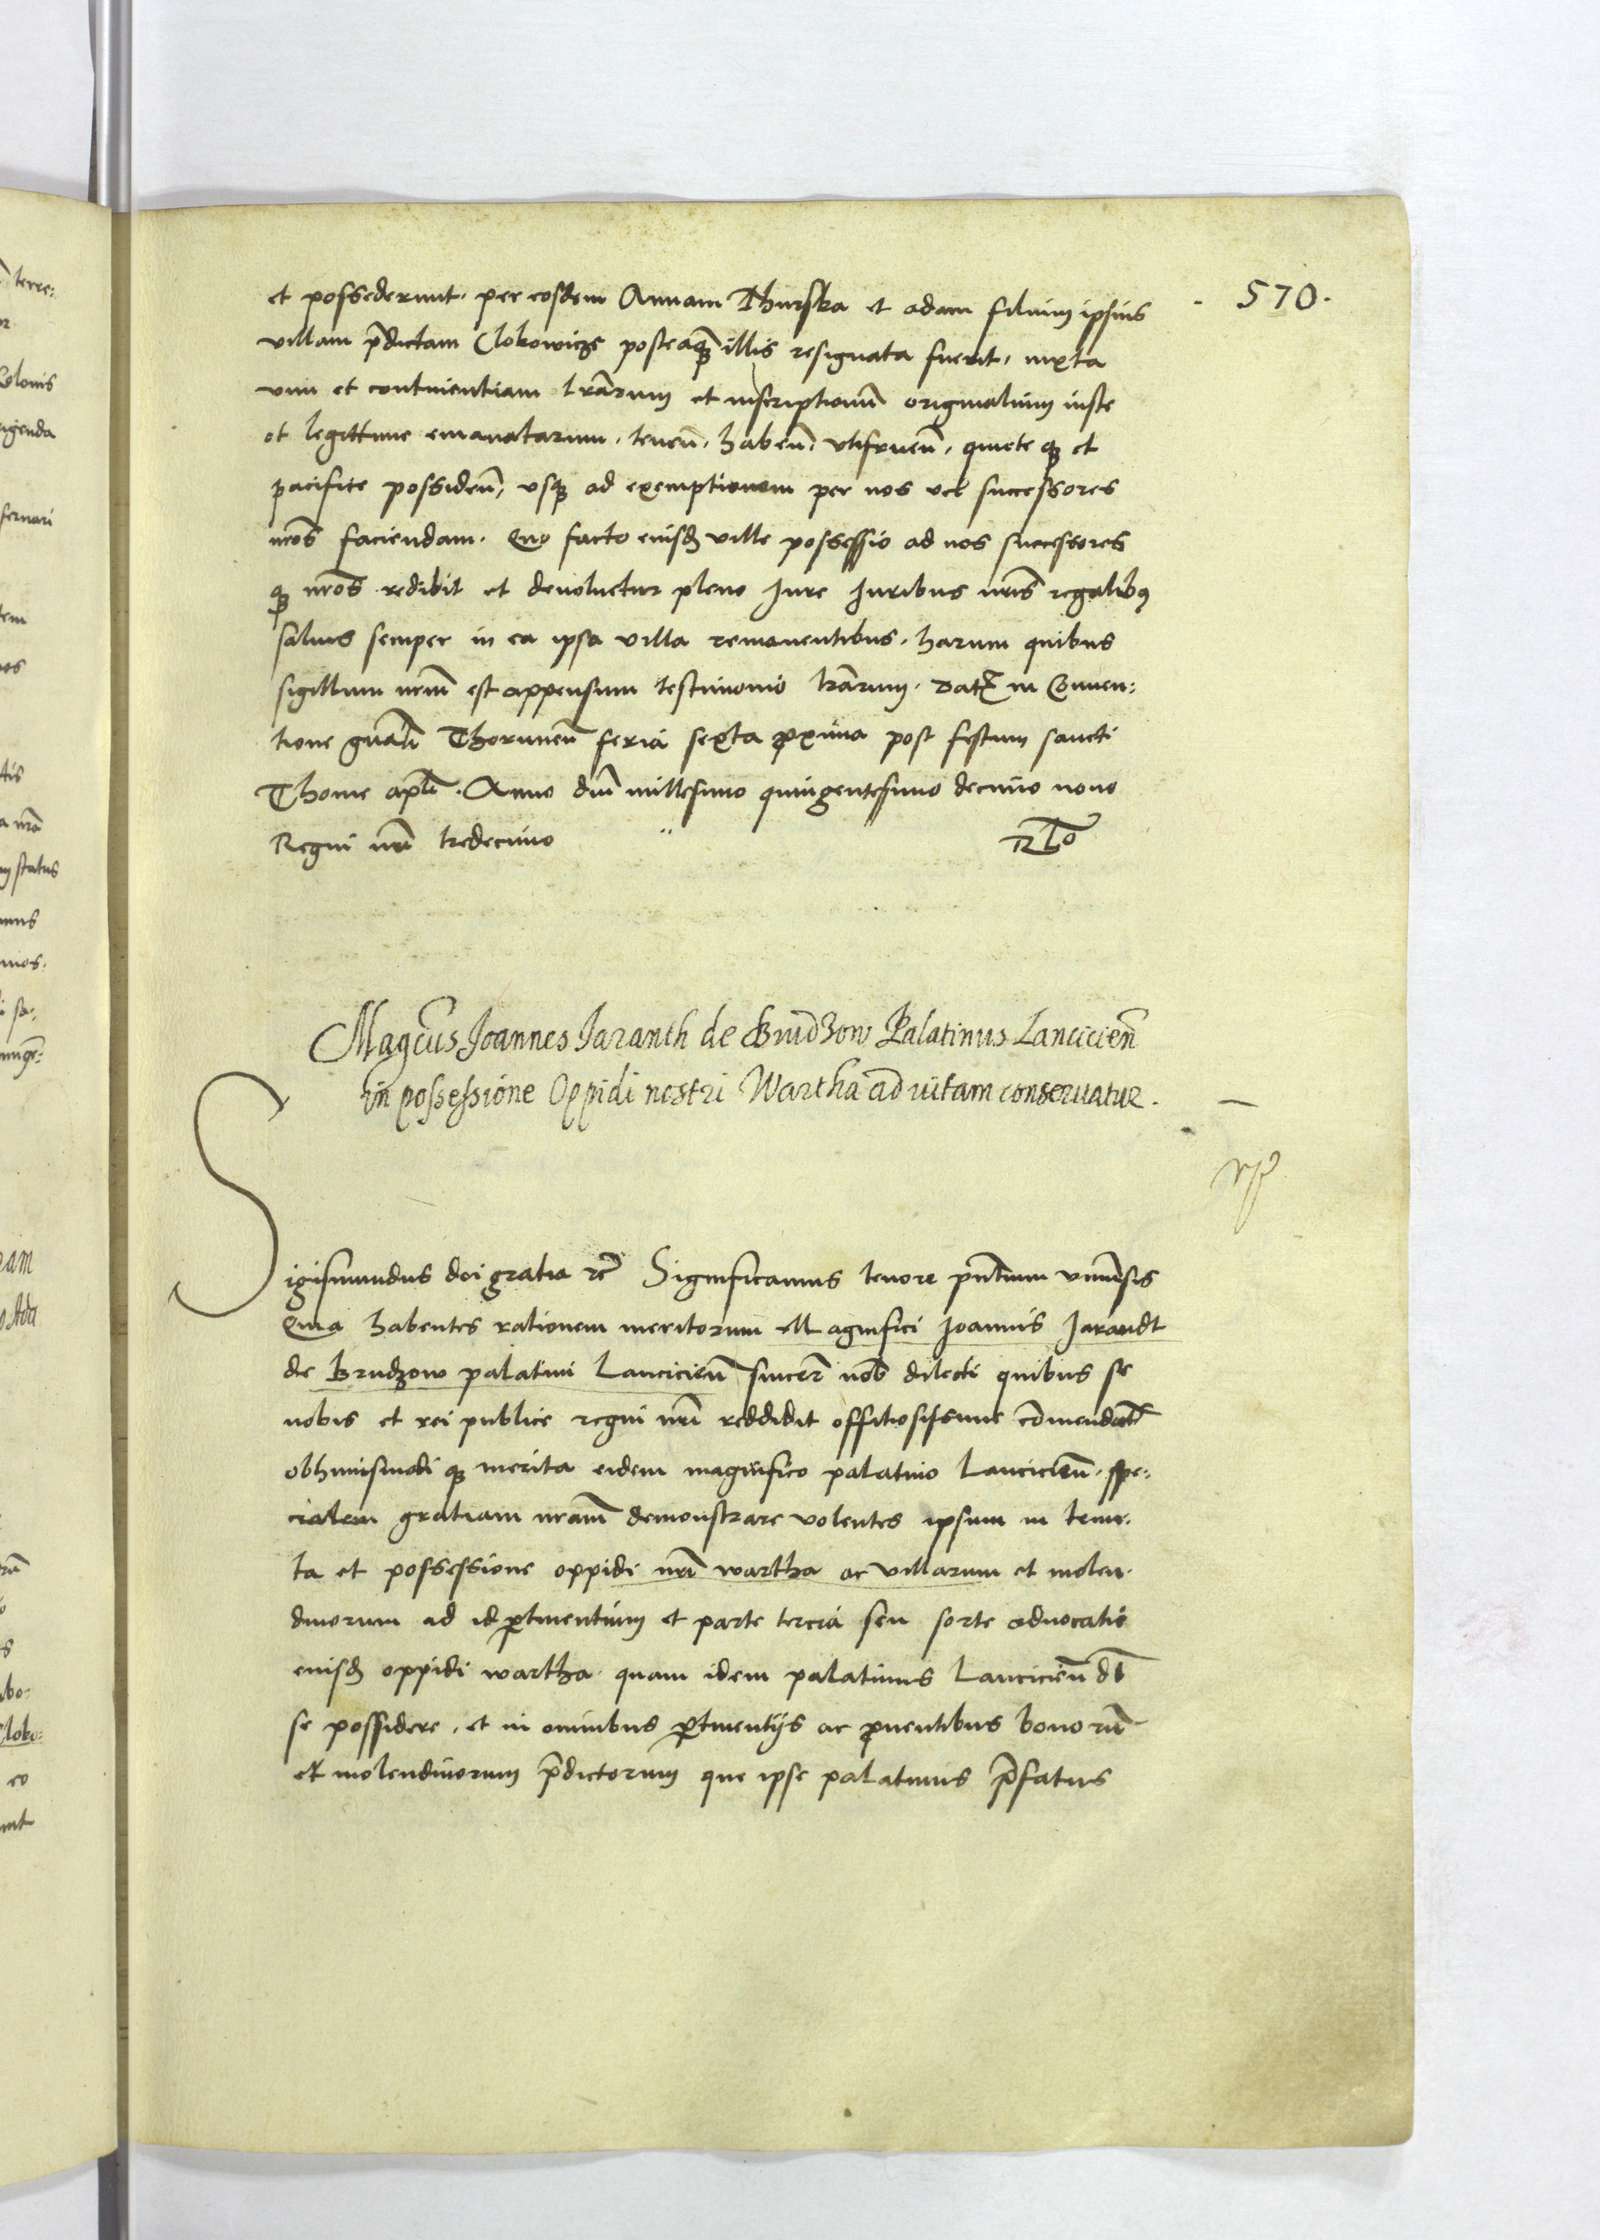 570.
et possederunt. per eosdem Annam Thurska et adam filium ipsius
villam p̄dictam Clobowicze posteaq̄ illis resignata fuerit, iuxta
vim et continentiam lr̄arum et inscriptionū originalium iuste
et legittime emanatarum, tenen̄. haben̄. vtifruen̄. quiete q̄ et
pacifice possiden̄, vsq̄ ad exemptionem per nos vel successores
nr̄os faciendam. Quo facto eiusd̄ ville possessio ad nos successores
q̄ nr̄os redibit et deuoluetur pleno Jure Juribus nr̄is regalibꝫ
saluis semper in ea ipsa villa remanentibus. harum quibus
sigillum nr̄m est appensum testimonio lr̄arum. Dat̄ in Conuen:
tione gn̄ali Thorunen̄ feria sexta proxima post festum sancti
Thome apl̄i. Anno dn̄i millesimo quingentesimo decimo nono
Regni nr̄i tredecimo Rl̄o
Magcūs Joannes Jaranth de Brudzow Palatinus Lancicien̄
in possessione Oppidi nostri Wartha ad uitam conseruatur.
Sigismundus dei gratia rc̄ Significamus tenore pn̄tium vniūsis
Quia habentes rationem meritorum Magnifici Joannis Jarandt
de Brudzow palatini Lancicien̄ sincer̄ nob̄ dilecti quibus se
nobis et rei publice regni nr̄i reddidit offitiosissime com̄endat̄
obhuiusmodi q̄ merita eidem magnifico palatino Lancicien̄. spe:
cialem gratiam nr̄am demonstrare volentes ipsum in tenu:
ta et possessione oppidi nr̄i wartha ac villarum et molen:
dinorum ad id ꝑtinentium et parte tercia seu sorte aduocatie
eiusd̄ oppidi wartha. quam idem palatinus Lancicien̄ dt̄
se possidere, et in omnibus ꝑtinentijs ac prouentibus bonorū
et molendinorum p̄dictorum que ipse palatinus p̄fatus